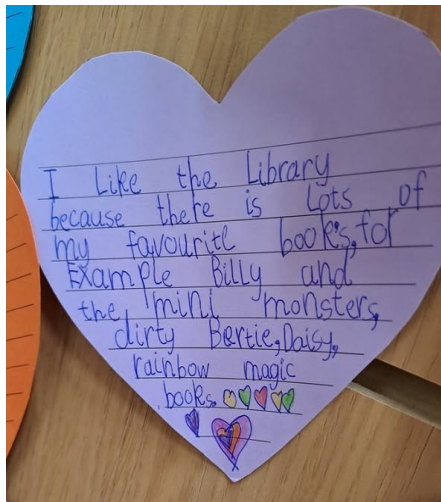 I Like the Library
because there is Lots of
my favourite book's, for
Example Billy and
the mini monsters,
dirty Bertie, Daisy,
rainbow magic
books.